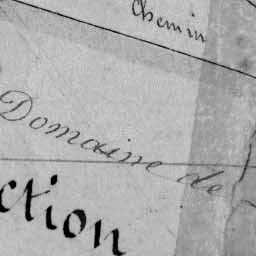 Chemin
Domaine de
ction